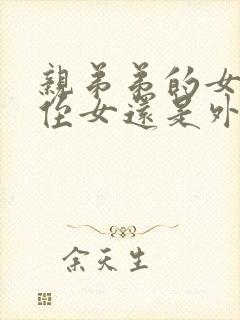 親弟弟的女
侄女還是外
余天生